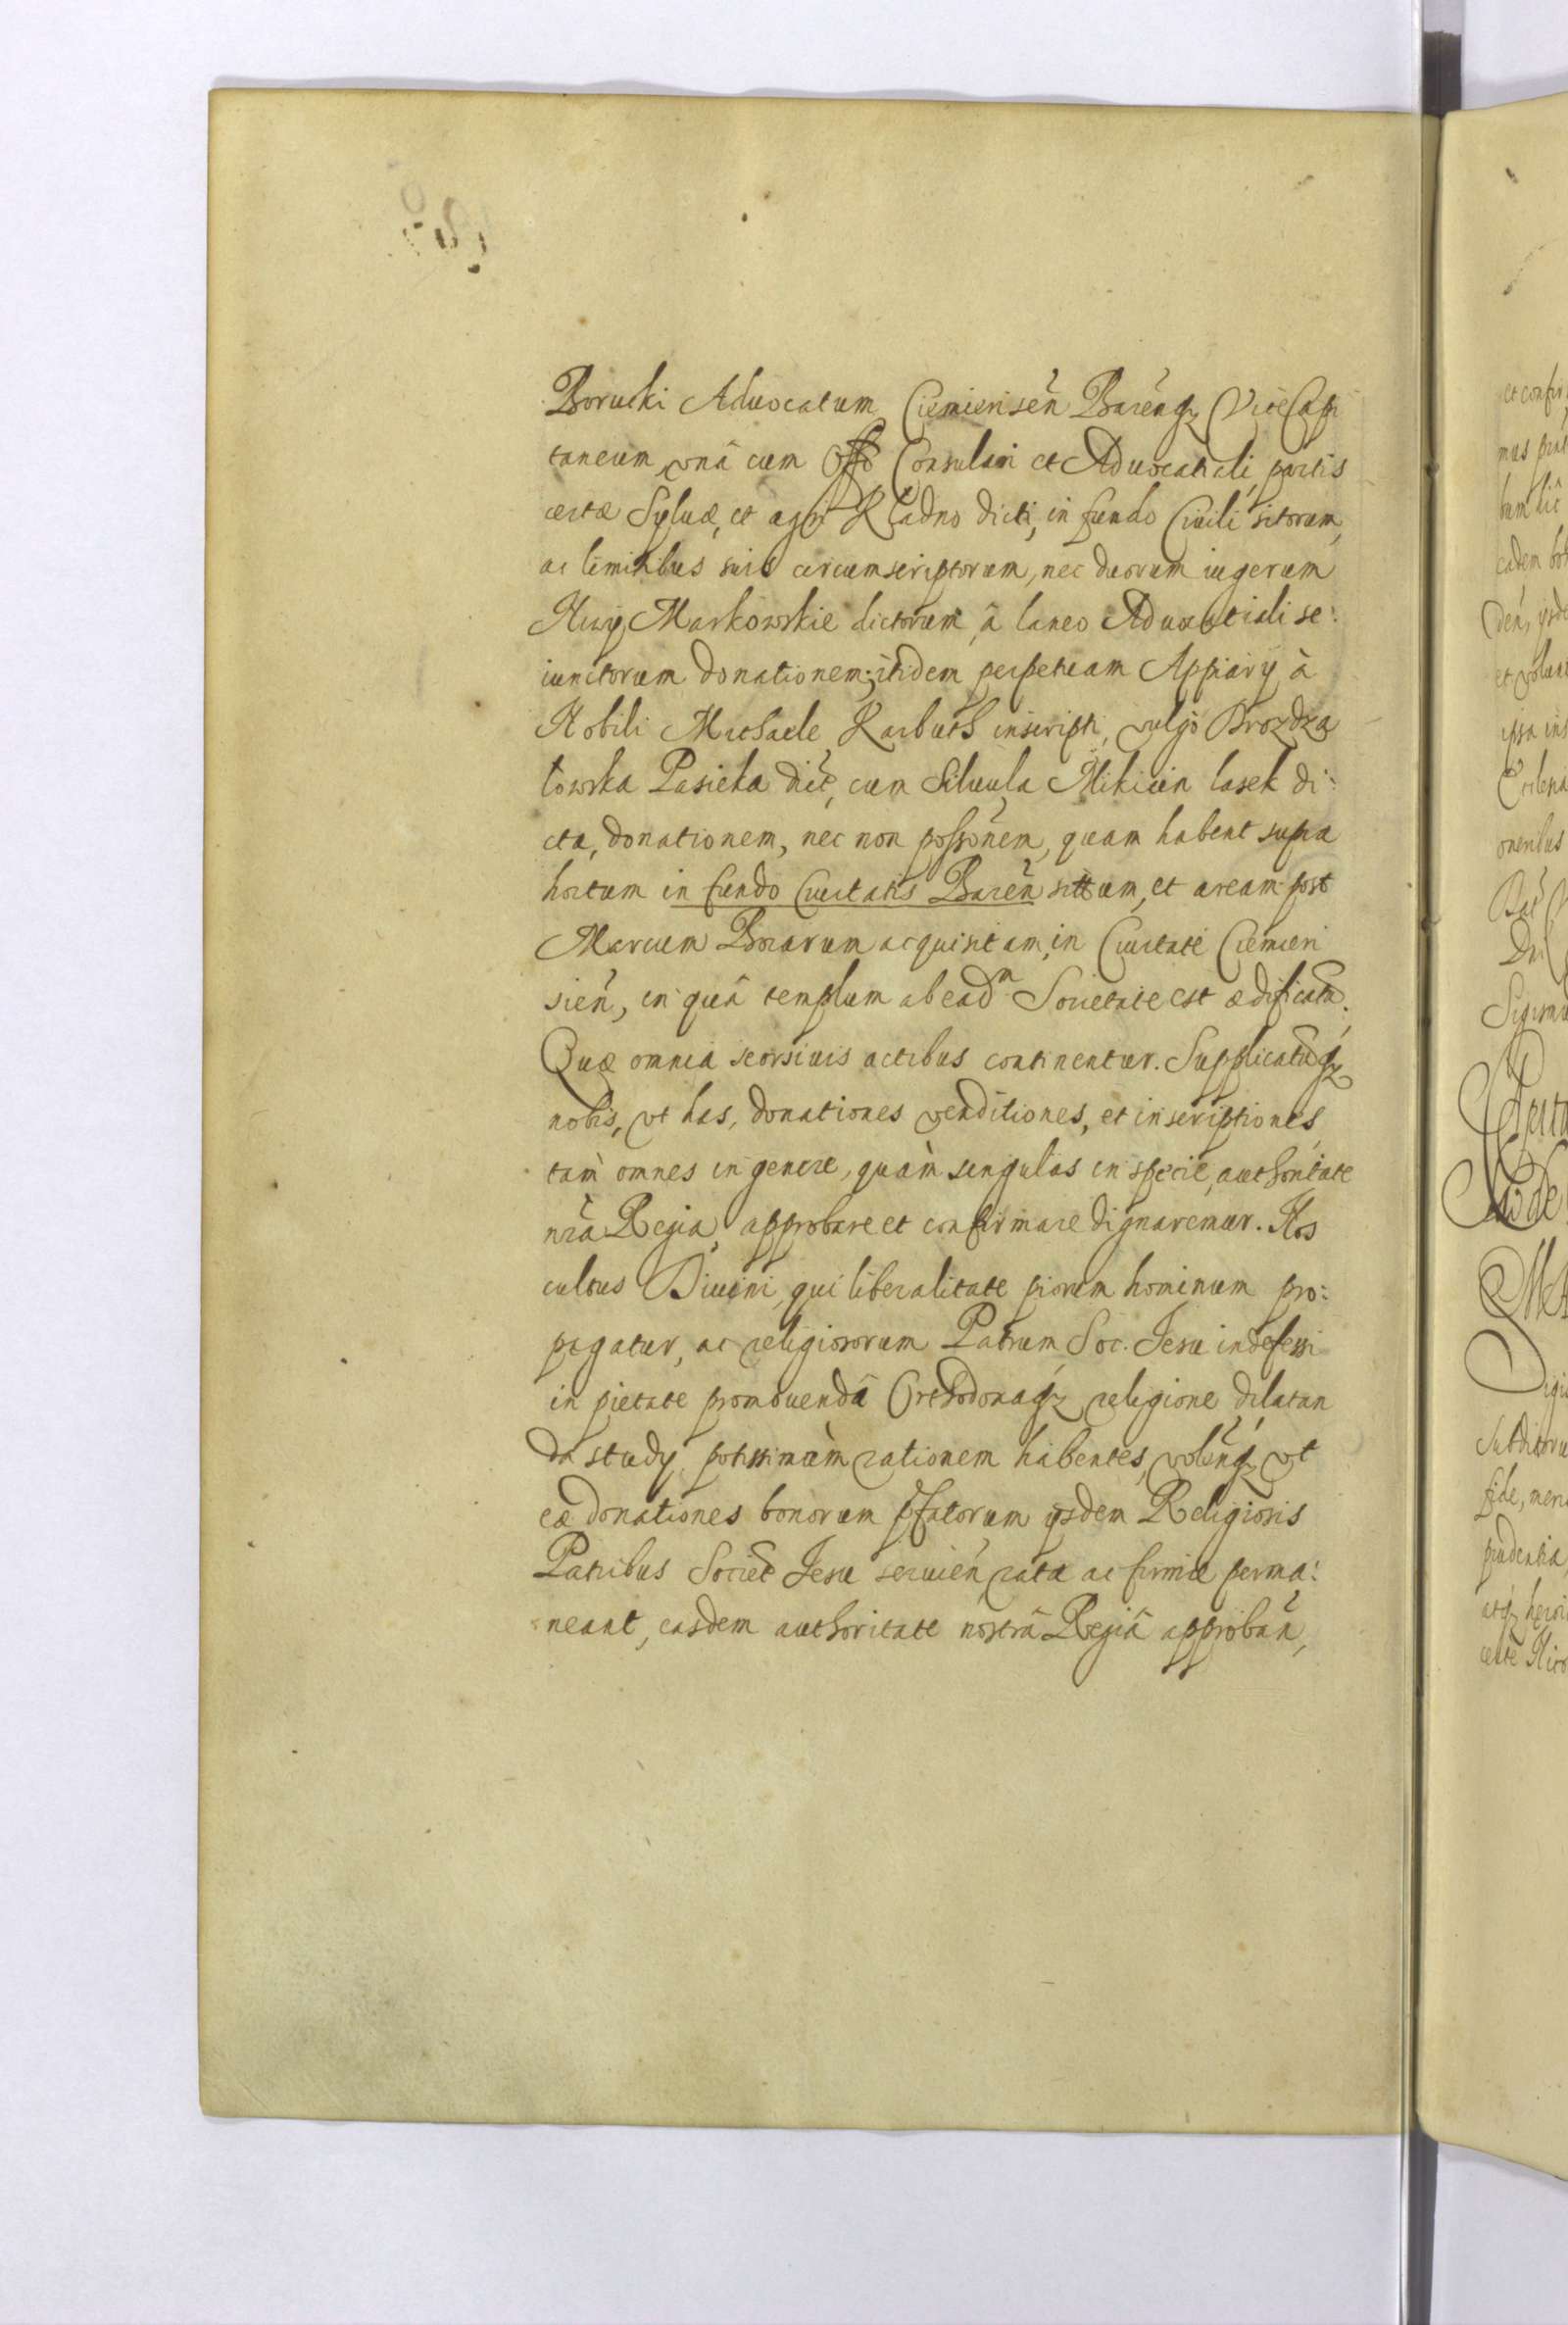 Borucki Aduocatum Ciemierisen̄ Baren̄q₃ ViceCapi
taneum, vnâ cum Offo Consulari et Aduocatiali, partis
certæ Syluæ, et agri Kładno dicti, in fundo Ciuili sitorum,
ac limitibus suis circumscriptorum, nec duorum iugerum
Niwy Markowskie dictorum, â laneo Aduocatiali se:
iunctorum donationem; itidem perpetuam Appiarÿ à
Nobili Michaele Karbuth inscripti, vulgò Brozdza
towska Pasieka dict̄, cum Siluula Mikicin lasek di:
cta, donationem, nec non possōnem, quam habent supra
hortum in fundo Ciuitatis Baren̄ sittum, et aream post
Marcum Bozarum acquisitam, in Ciuitate Ciemieri
sien̄, in quâ templum ab ead̄m Societate est ædificatū.
Quæ omnia seorsiuis actibus continentur. Supplicatūq₃
nobis, vt has, donationes venditiones, et inscriptiones,
tam̀ omnes in genere, quam̀ singulas in specie, authoritate
nr̄a Regia, approbare et confirmare dignaremur. Nos
cultus Diuini, qui liberalitate piorum hominum pro:
pagatur, ac religiosorum Patrum Soc. Jesu indefessi
in pietate promouendâ Orthodoxaq₃ religione dilatan
da studÿ potissimùm rationem habentes, volen̄q₃ vt
eæ donationes bonorum p̄fatorum ÿsdem Religiosis
Patribus Societ̄ Jesu seruien̄ rata ac firmæ perma:
neant, easdem authoritate nostrâ Regiâ approban̄,